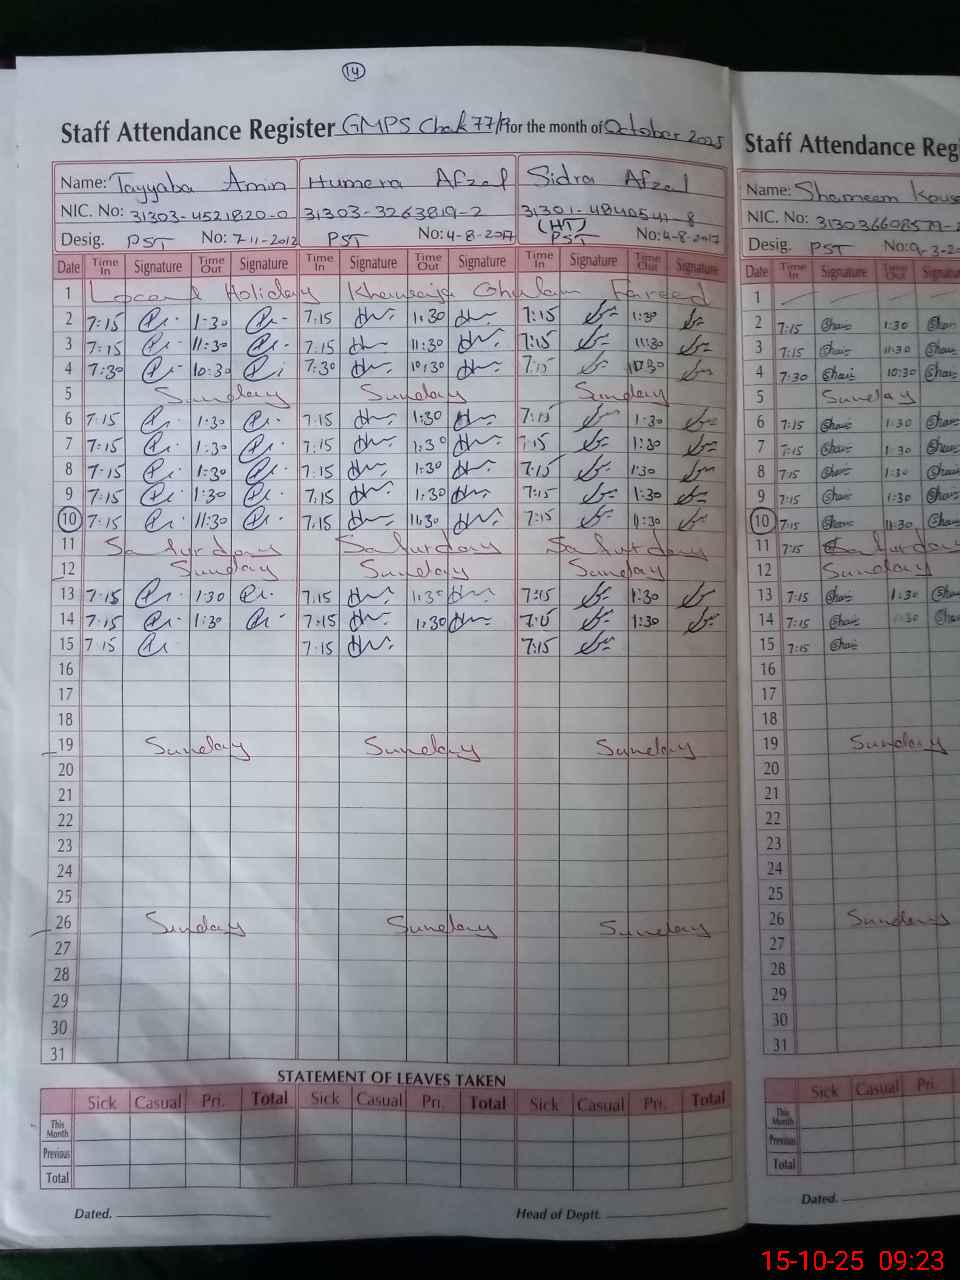 14
Staff Attendance Register GMPS Chak 77/P for the month of October 2025
Name: Tayyaba Amin Humera Afzal Sidra Afzal
NIC. No: 31303-4521820-0 31303-3263819-2 31301-4840541-8
(HT)
Desig. PST No: 7-11-2012 PST No: 4-8-2017 PST No: 4-8-2017
Date Time In Signature Time Out Signature Time In Signature Time Out Signature Time In Signature Time Out Signature
1 Local Holiday Khawaja Ghulam Fareed
2 7:15 1:30 7:15 1:30 7:15 1:30
3 7:15 11:30 7:15 11:30 7:15 11:30
4 7:30 10:30 7:30 10:30 7:15 10:30
5 Sunday Sunday Sunday
6 7:15 1:30 7:15 1:30 7:15 1:30
7 7:15 1:30 7:15 1:30 7:15 1:30
8 7:15 1:30 7:15 1:30 7:15 1:30
9 7:15 1:30 7:15 1:30 7:15 1:30
10 7:15 11:30 7:15 11:30 7:15 11:30
11 Saturday Saturday Saturday
12 Sunday Sunday Sunday
13 7:15 1:30 7:15 1:30 7:15 1:30
14 7:15 1:30 7:15 1:30 1:30
15 7:15 7:15 7:15
16
17
18
19 Sunday Sunday Sunday
20
21
22
23
24
25
26 Sunday Sunday Sunday
27
28
29
30
31
STATEMENT OF LEAVES TAKEN
Sick Casual Pri. Total Sick Casual Pri. Total Sick Casual Pri. Total
This Month
Previous
Total
Dated. Head of Deptt.
Staff Attendance Reg
Name: Shameem Kous
NIC. No:
Desig. PST No:
Date Time In Signature Time Out Signatu
1
2 7:15 Sham 1:30 Sham
3 7:15 Sham 11:30 Sham
4 7:30 Sham 10:30 Sham
5 Sunday
6 7:15 Sham 1:30 Sham
7 7:15 Sham 1:30 Sham
8 7:15 Sham 1:30 Sham
9 7:15 Sham 1:30 Sham
10 7:15 Sham 11:30 Sham
11 7:15 Saturday
12 Sunday
13 7:15 Sham 1:30 Sham
14 7:15 Sham 1:30 Sham
15 7:15 Sham
16
17
18
19 Sunday
20
21
22
23
24
25
26 Sunday
27
28
29
30
31
Sick Casual Pri.
This Month
Previous
Total
Dated.
15-10-25 09:23